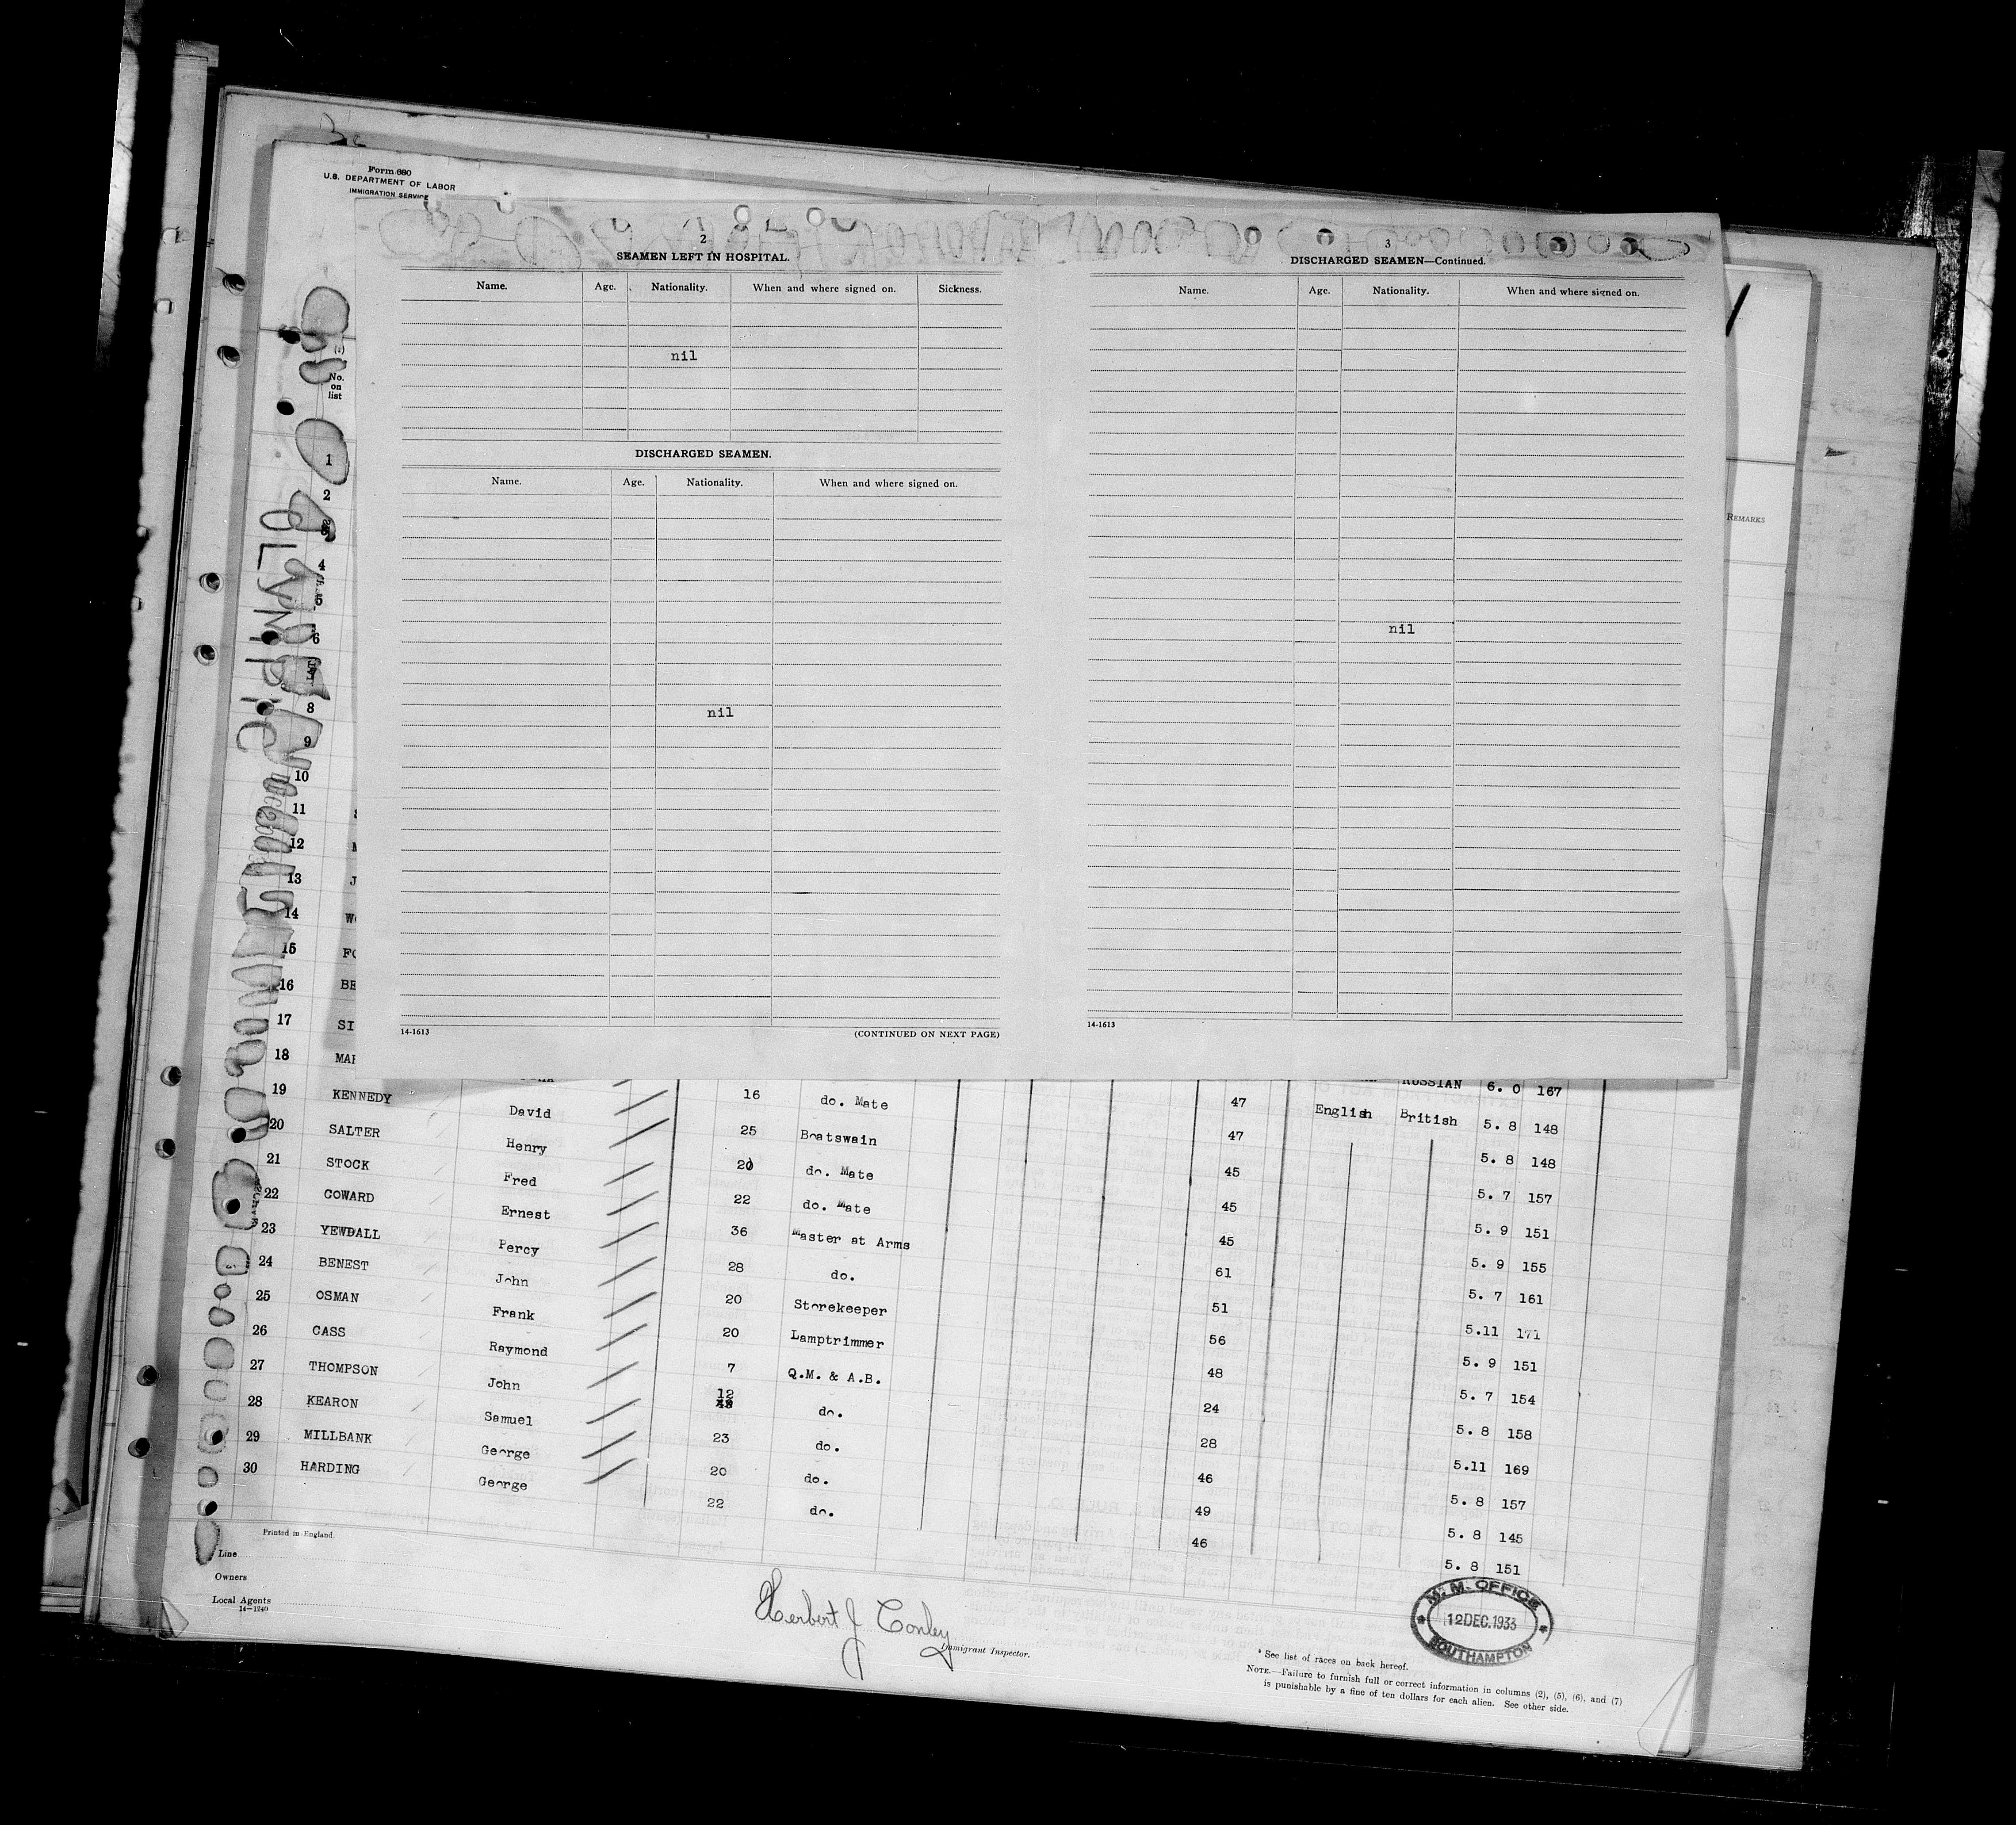 Form 680
U.S. DEPARTMENT OF LABOR
IMMIGRATION SERVICE
No. on list
OLYMPIC
2
SEAMEN LEFT IN HOSPITAL.
Name. Age. Nationality. When and where signed on. Sickness.
nil
DISCHARGED SEAMEN.
Name. Age. Nationality. When and where signed on.
nil
14-1613 (CONTINUED ON NEXT PAGE)
3
DISCHARGED SEAMEN—Continued.
Name. Age. Nationality. When and where signed on.
nil
14-1613
REMARKS
1
2
4
5
6
8
9
10
11
12
13
14
15
16 BE RUSSIAN 6. 0 167
17 SI 47 English British 5. 8 148
18 MAR 16 do. Mate 47 5. 8 148
19 KENNEDY David 25 Boatswain 45 5. 7 157
20 SALTER Henry 20 do. Mate 45 5. 9 151
21 STOCK Fred 22 do. Mate 45 5. 9 155
22 COWARD Ernest 36 Master at Arms 61 5. 7 161
23 YEWDALL Percy 28 do. 51 5.11 171
24 BENEST John 20 Storekeeper 56 5. 9 151
25 OSMAN Frank 20 Lamptrimmer 48 5. 7 154
26 CASS Raymond 7 Q.M. & A.B. 24 5. 8 158
27 THOMPSON John 12 do. 28 5.11 169
28 KEARON Samuel 23 do. 46 5. 8 157
29 MILLBANK George 20 do. 49 5. 8 145
30 HARDING George 22 do. 46 5. 8 151
Printed in England.
Line
Owners
Local Agents
14-1240
Herbert J. Conley
Immigrant Inspector.
M. M. OFFICE
12 DEC. 1933
SOUTHAMPTON
* See list of races on back hereof.
NOTE.—Failure to furnish full or correct information in columns (2), (5), (6), and (7)
is punishable by a fine of ten dollars for each alien. See other side.